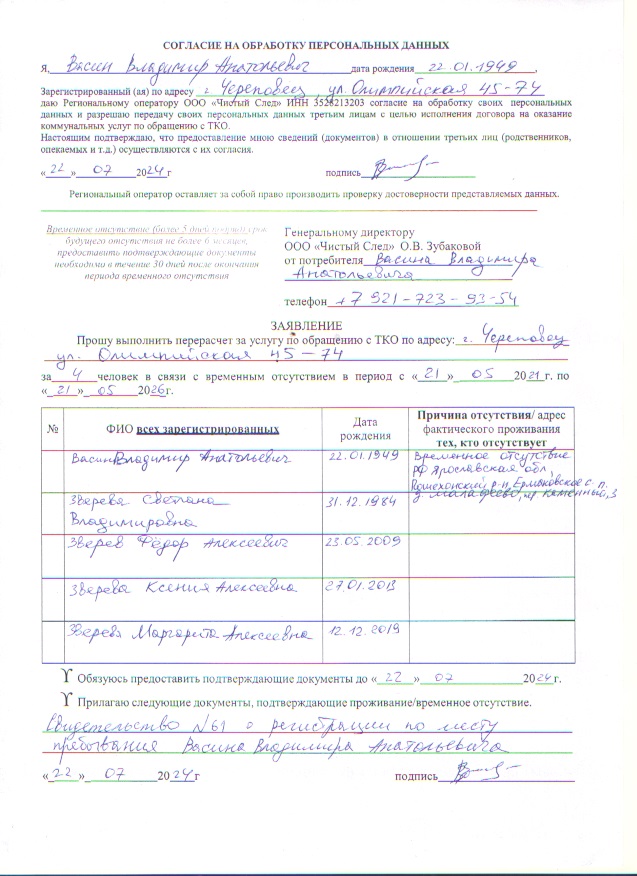 СОГЛАСИЕ НА ОБРАБОТКУ ПЕРСОНАЛЬНЫХ ДАННЫХ
Я, Васин Владимир Анатольевич дата рождения 22.01.1949,
Зарегистрированный (ая) по адресу г. Череповец, ул. Олимпийская 45-74
даю Региональному оператору ООО «Чистый След» ИНН 3528213203 согласие на обработку своих персональных
данных и разрешаю передачу своих персональных данных третьим лицам с целью исполнения договора на оказание
коммунальных услуг по обращению с ТКО.
Настоящим подтверждаю, что предоставление мною сведений (документов) в отношении третьих лиц (родственников,
опекаемых и т.д.) осуществляются с их согласия.
«22» 07 2024 г подпись
Региональный оператор оставляет за собой право производить проверку достоверности представляемых данных.
Временное отсутствие (более 5 дней подряд) срок
будущего отсутствия не более 6 месяцев,
предоставить подтверждающие документы
необходимо в течение 30 дней после окончания
периода временного отсутствия
Генеральному директору
ООО «Чистый След» О.В. Зубаковой
от потребителя Васина Владимира
Анатольевича
телефон +7 921-723-93-54
ЗАЯВЛЕНИЕ
Прошу выполнить перерасчет за услугу по обращению с ТКО по адресу: г. Череповец
ул. Олимпийская 45-74
за 4 человек в связи с временным отсутствием в период с «21» 05 2021 г. по
«21» 05 2026г.
№ ФИО всех зарегистрированных Дата рождения Причина отсутствия/ адрес фактического проживания тех, кто отсутствует
Васин Владимир Анатольевич 22.01.1949 Временное отсутствие
РФ Ярославская обл,
Пошехонский р-н, Ермаковское с. п.
д. Малафеево, 3
Зверева Светлана 31.12.1984
Владимировна
Зверев Фёдор Алексеевич 23.05.2009
Зверева Ксения Алексеевна 27.01.2013
Зверева Маргарита Алексеевна 12.12.2019
ϒ Обязуюсь предоставить подтверждающие документы до «22» 07 2024г.
ϒ Прилагаю следующие документы, подтверждающие проживание/временное отсутствие.
Свидетельство №61 о регистрации по месту
пребывания Васина Владимира Анатольевича
«22» 07 2024 г подпись